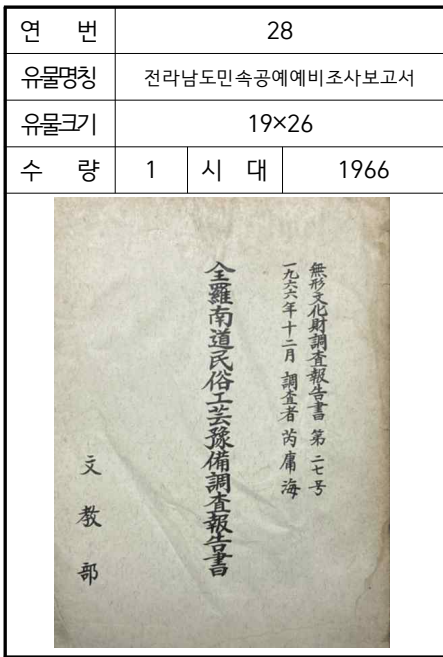 연 번 28
유물명칭 전라남도민속공예예비조사보고서
유물크기 19×26
수 량 1 시 대 1966
無形文化財調査報告書 第二七号
一九六六年十二月 調査者 芮庸海
全羅南道民俗工芸豫備調査報告書
文教部